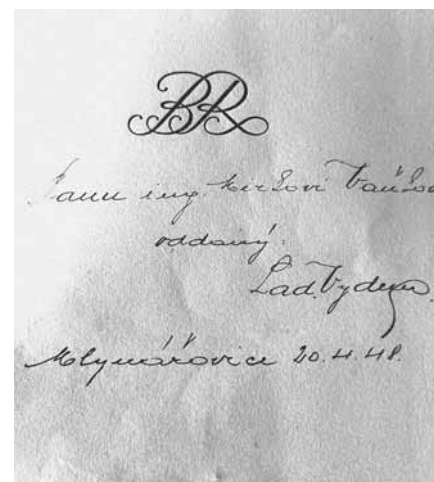 BR
Panu ing. Mirkovi Vaňkov
oddaný
Lad. Vydra.
Mlynářovice 20.4.48.